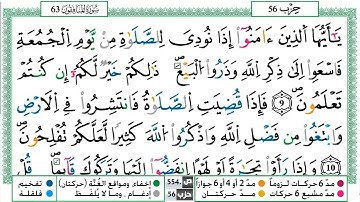 63 سُورَةُ المُنَافِقُون حِزْب 56
يَٰٓأَيُّهَا ٱلَّذِينَ ءَامَنُوٓا۟ إِذَا نُودِىَ لِلصَّلَوٰةِ مِن يَوْمِ ٱلْجُمُعَةِ
فَٱسْعَوْا۟ إِلَىٰ ذِكْرِ ٱللَّهِ وَذَرُوا۟ ٱلْبَيْعَ ذَٰلِكُمْ خَيْرٌ لَّكُمُۥٓ إِن كُنتُمْ
تَعْلَمُونَ 9 فَإِذَا قُضِيَتِ ٱلصَّلَوٰةُ فَٱنتَشِرُوا۟ فِى ٱلْأَرْضِ
وَٱبْتَغُوا۟ مِن فَضْلِ ٱللَّهِ وَٱذْكُرُوا۟ ٱللَّهَ كَثِيرًا لَّعَلَّكُمْ تُفْلِحُونَ
10 وَإِذَا رَأَوْا۟ تِجَٰرَةً أَوْ لَهْوًا ٱنفَضُّوٓا۟ إِلَيْهَا وَتَرَكُوكَ قَآئِمًا قُلْ
مدّ 6 حركات لزوماً مدّ 2 أو 4 أو 6 جوازاً ص 554 إخفاء، ومواقع الغُنَّة (حركتان) تفخيم
مدّ مشبع 6 حركات مدّ حركتان حزب 56 إدغام، وما لا يُلفَظ قلقلة